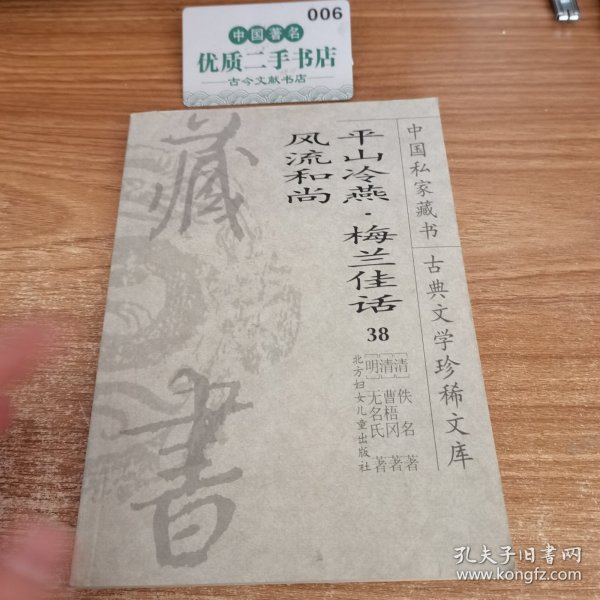 006
中国著名
优质二手书店
古今文献书店
中国私家藏书
古典文学珍稀文库
平山冷燕·梅兰佳话
风流和尚
38
[清] 佚名 著
[清] 曹梧冈 著
[明] 无名氏 著
北方妇女儿童出版社
藏書
孔夫子旧书网
www.kongfz.com